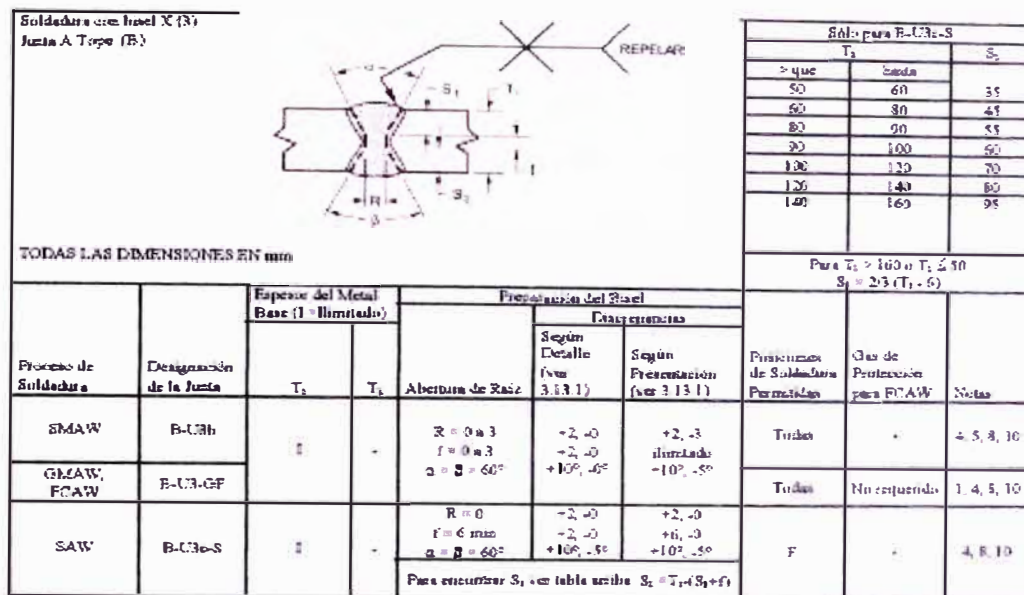 Soldadura con bisel X (3)
Junta A Tope (B)
REPELAR
α
S₁
T₁
f
S₂
R
β
TODAS LAS DIMENSIONES EN mm
Sólo para B-U3c-S
T₁ S₁
> que hasta
50 60 35
60 80 45
80 90 55
90 100 60
100 120 70
120 140 80
140 160 95
Para T₁ > 160 o T₁ ≤ 50
S₁ = 2/3 (T₁ - 6)
Proceso de Soldadura
Designación de la Junta
Espesor del Metal Base (I = Ilimitado)
T₁
Preparación del Bisel
Abertura de Raíz
Según Detalle (ver 3.13.1)
Según Presentación (ver 3.13.1)
Posiciones de Soldadura Permitidas
Gas de Protección para FCAW
Notas
SMAW
B-U3b
-
R = 0 a 3 +2, -0 +2, -3
f = 0 a 3 +2, -0 ilimitado
α = β = 60° +10°, -0° +10°, -5°
Todas
-
4, 5, 8, 10
GMAW, FCAW
B-U3-GF
Todas
No requerido
1, 4, 8, 10
SAW
B-U3c-S
-
R = 0 +2, -0 +2, -0
f = 6 min +2, -0 +6, -0
α = β = 60° +10°, -5° +10°, -5°
F
-
4, 8, 10
Para encontrar S₁ ver tabla arriba S₂ = T₁-(S₁+f)